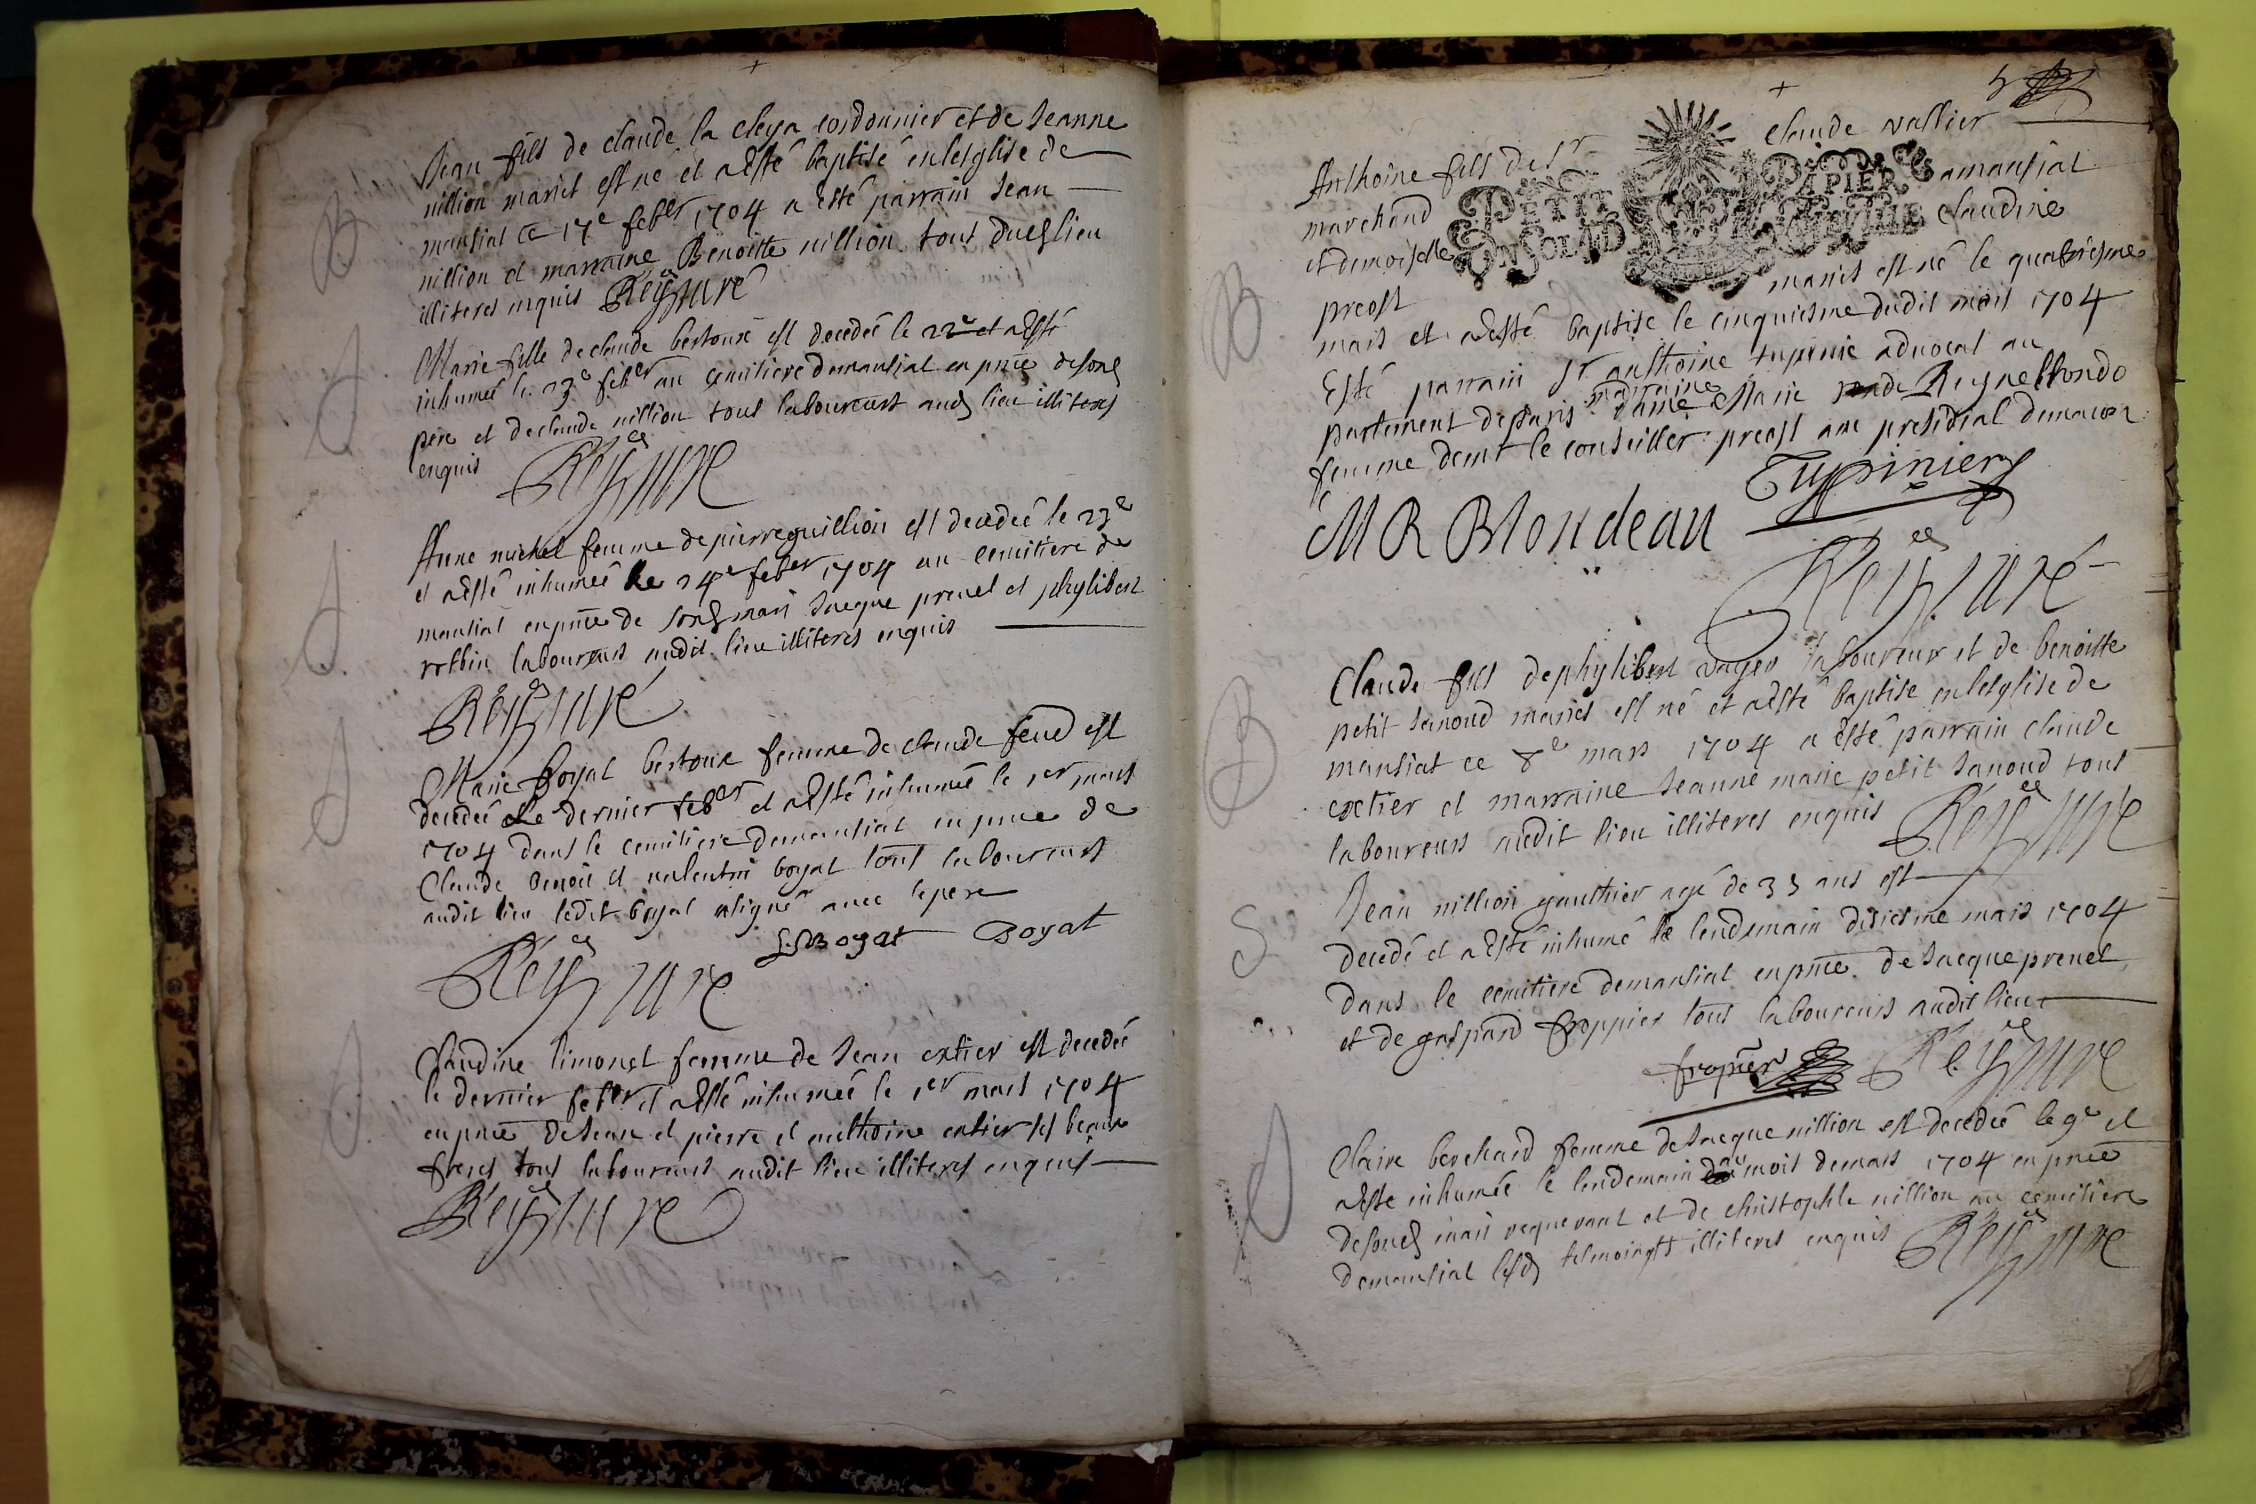 Jean fils de claude la cleya cordonnier et de Jeanne
nillion mariés est né et a esté baptisé en lesglise de
mansiat ce 17e feber 1704 a esté parrain Jean
nillion et marraine Benoitte nillion tous dud lieu
illiteres enquis Rey curé
Marie fille de claude bertoux est decedeé le 22e et a esté
inhumeé le 23e feber au cemitiere de mansiat en pnce de sond
pere et de claude nillion tous laboureurs aud lieu illiteres
enquis Rey curé
Anne michel femme de pierre guillion est decedeé le 23e
et a esté inhumeé le 24e feber 1704 au cemitiere de
mansiat en pnce de sond mari Jacque prenel et phylibert
robbin laboureurs audit lieu illiteres enquis
Rey curé
Marie boyat bertoux femme de claude feud est
decedeé le dernier feber et a esté inhumeé le 1er mars
1704 dans le cemitiere de mansiat en pnce de
Claude benoit et valentin boyat tous laboureurs
audit lieu ledit boyat a signé avec le pere
Boyat Boyat
Rey curé
Claudine limonet femme de Jean extier est decedeé
le dernier feber et a esté inhumeé le 1er mars 1704
en pnce de Jean et pierre et anthoine extier ses beaux
freres tous laboureurs audit lieu illiteres enquis
Rey curé
5
Anthoine fils de Sr claude vallier
marchand a mansiat
et demoiselle claudine
PETIT PAPIER
preost mariés est né le quatriesme
mars et a esté baptisé le cinquiesme dudit mois 1704
Esté parrain Sr anthoine tupinie advocat au
parlement de paris marraine dame Marie Reyne blondo
femme de mr le conseiller preost au presidial de macon
MR Blondeau Tupinier
Rey curé
Claude fils de phylibert voyer laboureur et de benoitte
petit Janoud mariés est né et a esté baptisé en lesglise de
mansiat ce 8e mars 1704 a esté parrain claude
extier et marraine Jeanne marie petit Janoud tous
laboureurs audit lieu illiteres enquis Rey curé
Jean nillion gauthier agé de 35 ans est
decedé et a esté inhumé le lendemain disiesme mars 1704
dans le cemitiere de mansiat en pnce de Jacque prenel
et de gaspard froppier tous laboureurs audit lieu
fropier Rey curé
Claire berchard femme de Jacque nillion est decedeé le 9e et
a esté inhumeé le lendemain du mois de mars 1704 en pnce
de sond mari requerant et de christophle nillion au cemitiere
de mansiat lesd tesmoingts illiteres enquis Rey curé